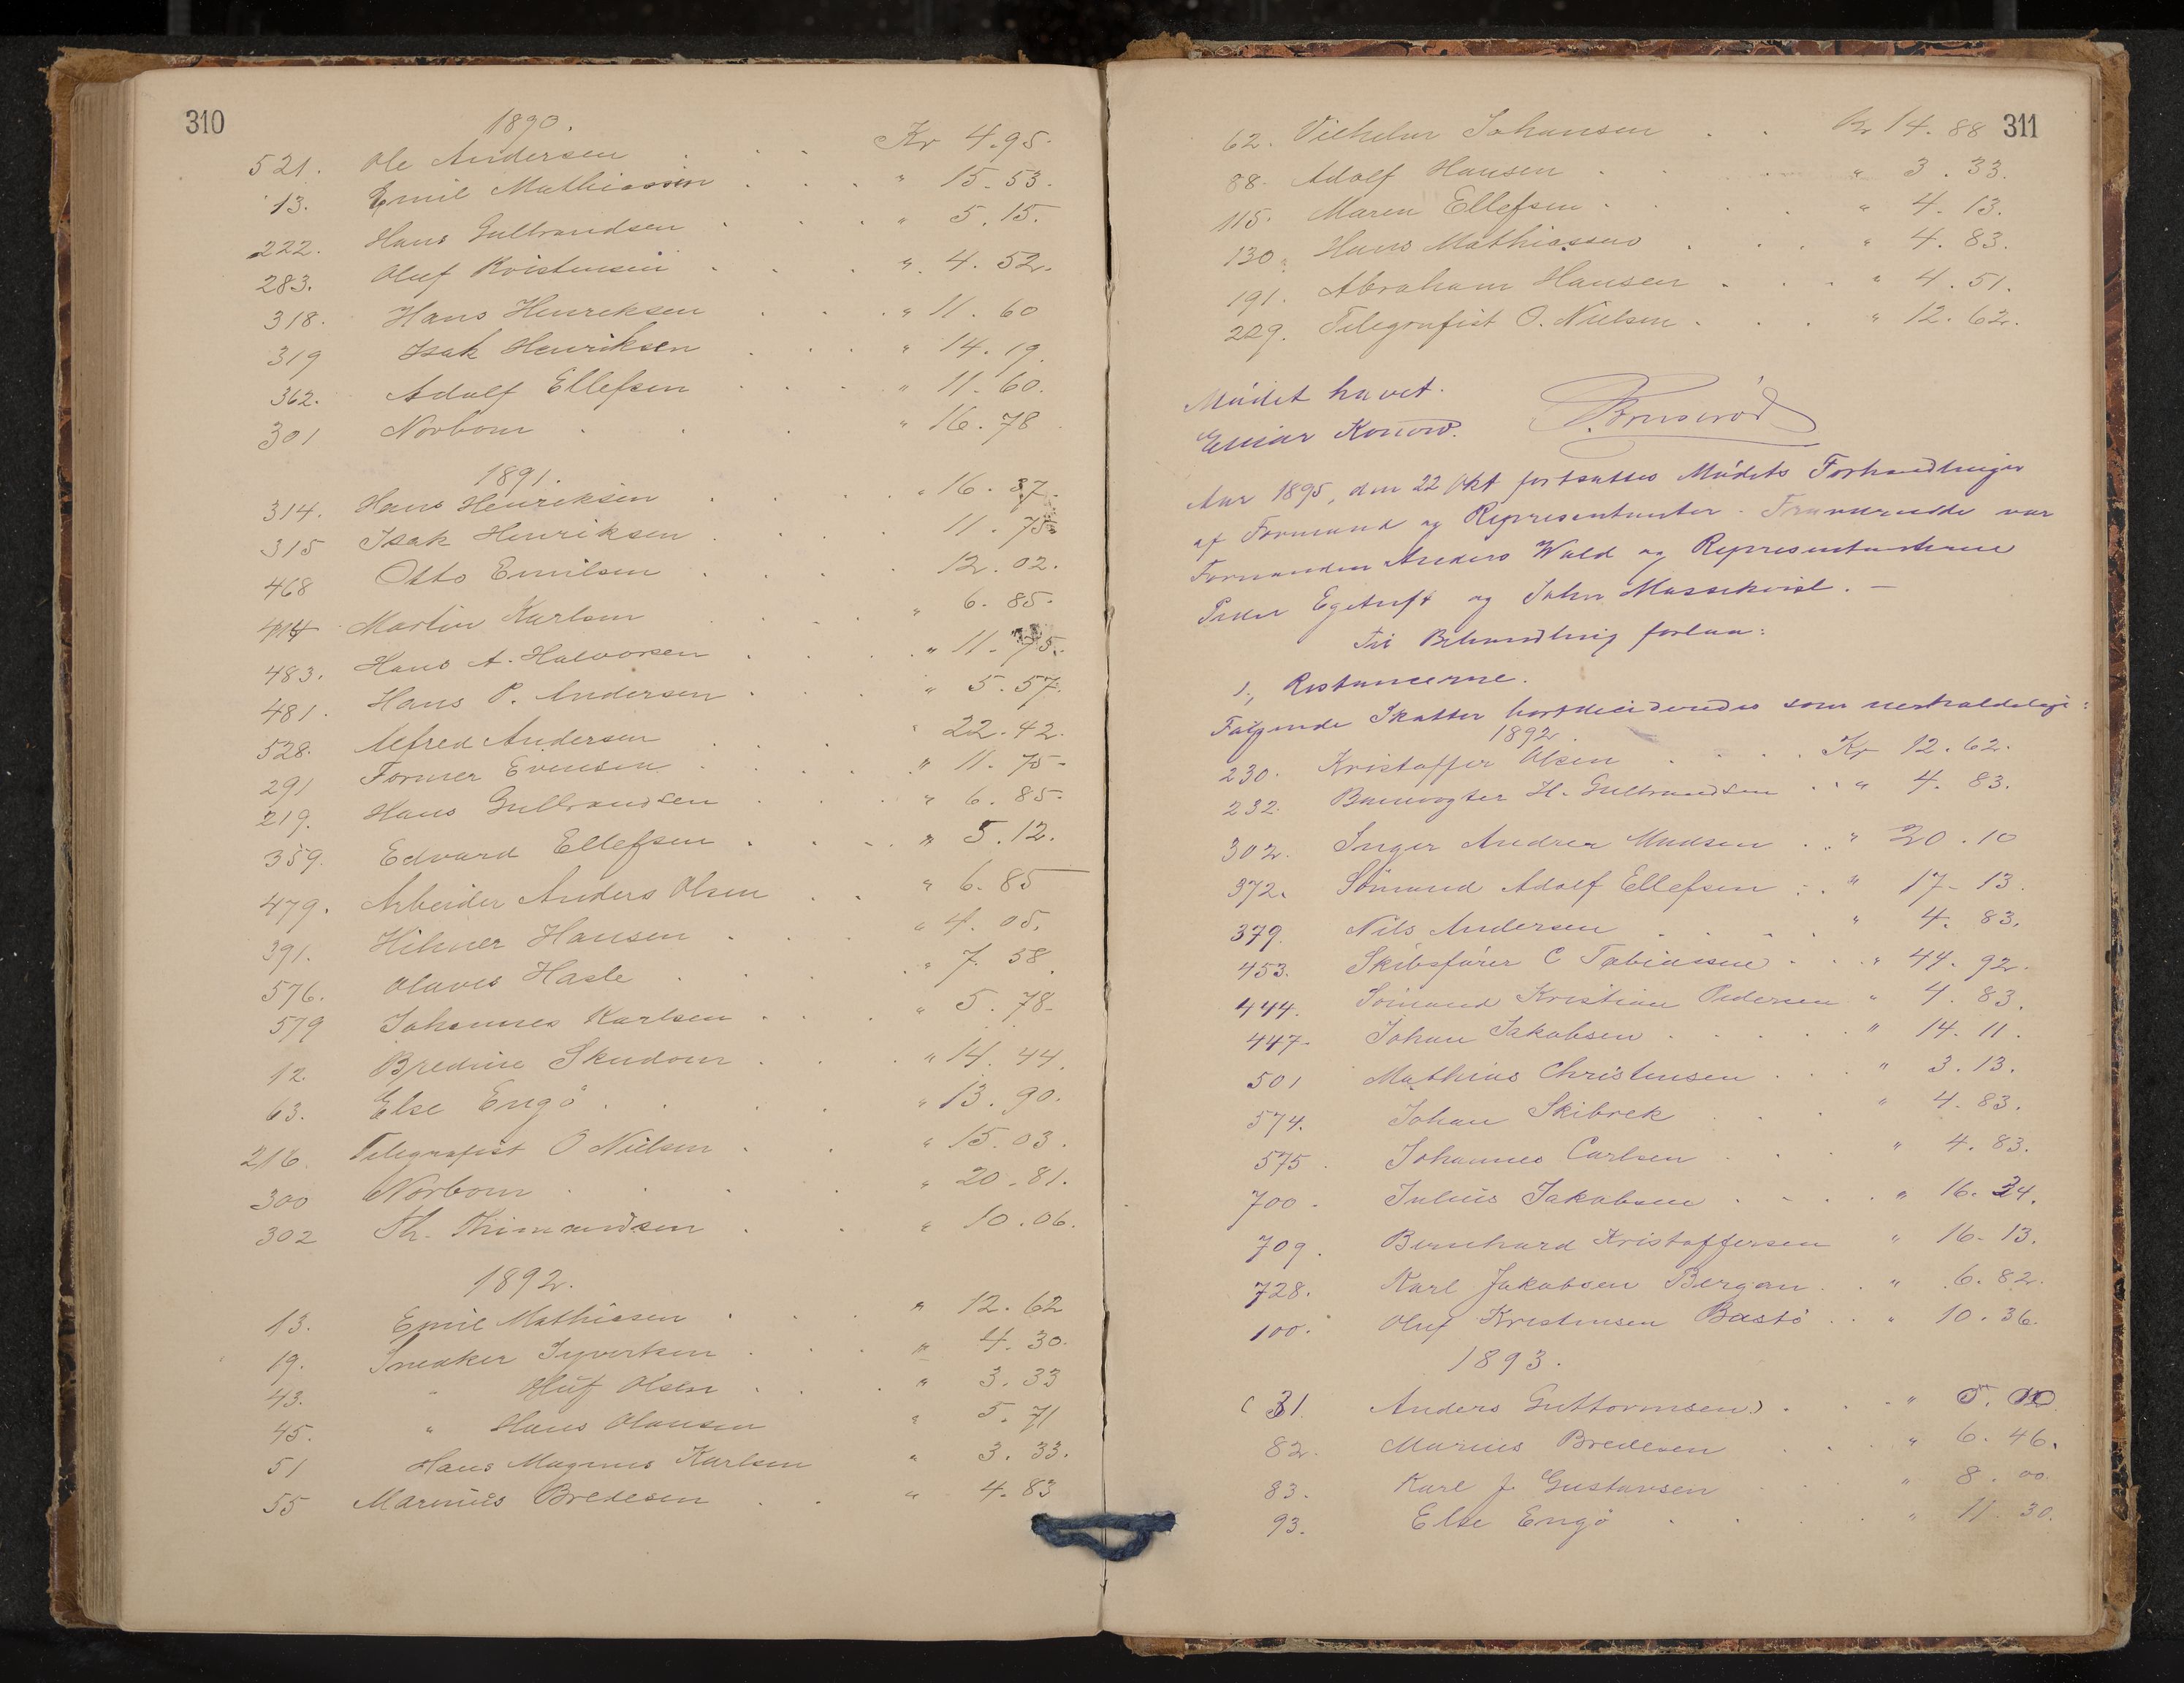 310
1890.
521. Ole Andersen . . . Kr 4.95.
13. Emil Mathiassen . . . " 15.53.
222. Hans Gulbrandsen . . . " 5.15.
283. Oluf Kristensen . . . " 4.52.
318. Hans Henriksen . . . " 11.60
319 Isak Henriksen . . . " 14.19.
362. Adolf Ellefsen . . . " 11.60.
301 Norbom . . . " 16.78
1891.
314. Hans Henriksen . . . " 16.37.
315 Isak Henriksen . . . 11.75
468 Otto Emilsen . . . 12.02.
414 Martin Karlsen . . . " 6.85.
483. Hans A. Halvorsen . . . " 11.75.
481. Hans P. Andersen . . . " 5.57.
528. Alfred Andersen . . . " 22.42.
291 Former Evensen . . . " 11.75-
219. Hans Gulbrandsen . . . " 6.85.
359. Edvard Ellefsen . . . " 5.12.
479. Arbeider Anders Olsen . . " 6.85
391. Hilmer Hansen . . . " 4.05.
576. Olaves Hasle . . . " 7.58.
579 Johannes Karlsen . . . " 5.78-
12. Bredine Skudom . . . " 14.44.
63. Else Engö . . . " 13.90.
216. Telegrafist O Nielsen . . " 15.03.
300 Norbom . . . " 20.81.
302 Th. Thimandsen . . " 10.06.
1892.
13. Emil Mathiesen . . . " 12.62
19. Snedker Syvertsen . . . " 4.30.
43. " Oluf Olsen . . . " 3.33
45. " Hans Olausen " 5.71
51 Hans Magnus Karlsen " 3.33.
55 Marinus Bredesen . . " 4.83
311
62. Vilhelm Johansen . . Kr 14.88
88. Adolf Hansen . . . " 3.33.
115. Maren Ellefsen . . . " 4.13.
130. Hans Mathiassen . . . " 4.83.
191. Abraham Hansen . . . " 4.51.
229. Telegrafist O. Nielsen . . . " 12.62.
Mödet hævet.
Einar Konow.
Aar 1895, den 22 Okt fortsattes Mödets Forhandlinger
af Formand og Representanter. Tilstede var
Formanden Anders Wald og Representanterne
Peder Egetuft og John Massekvist. —
Til Behandling forelaa:
1, Restancerne.
Følgende Skatter bortdecideredes som uerholdelige:
1892
230. Kristoffer Olsen . . . Kr 12.62.
232. Banevogter H. Gulbrandsen . . " 4.83.
302. Inger Andrea Madsen . . " 20.10
372. Sömand Adolf Ellefsen . . " 17-13.
379. Nils Andersen . . . . " 4.83.
453. Skibsförer C Tobiassen . . . " 44.92.
444. Sömand Kristian Pedersen " 4.83.
447- Johan Jakobsen . . . . " 14.11.
501 Mathias Christensen . . . " 3.13.
574. Johan Skibrek . . . " 4.83.
575. Johannes Carlsen . . . " 4.83.
700. Julius Jakobsen . . . . " 16.34.
709. Bernhard Kristoffersen " 16-13.
728. Karl Jakobsen Bergan . . " 6.82.
100. Oluf Kristensen Bastö . . " 10.36.
1893.
(31. Anders Guttormsen) . . . "
82. Marius Bredesen . . . " 6.46.
83. Karl J. Gustavsen . . . " 8.00.
93. Else Engö . . . . " 11.30.